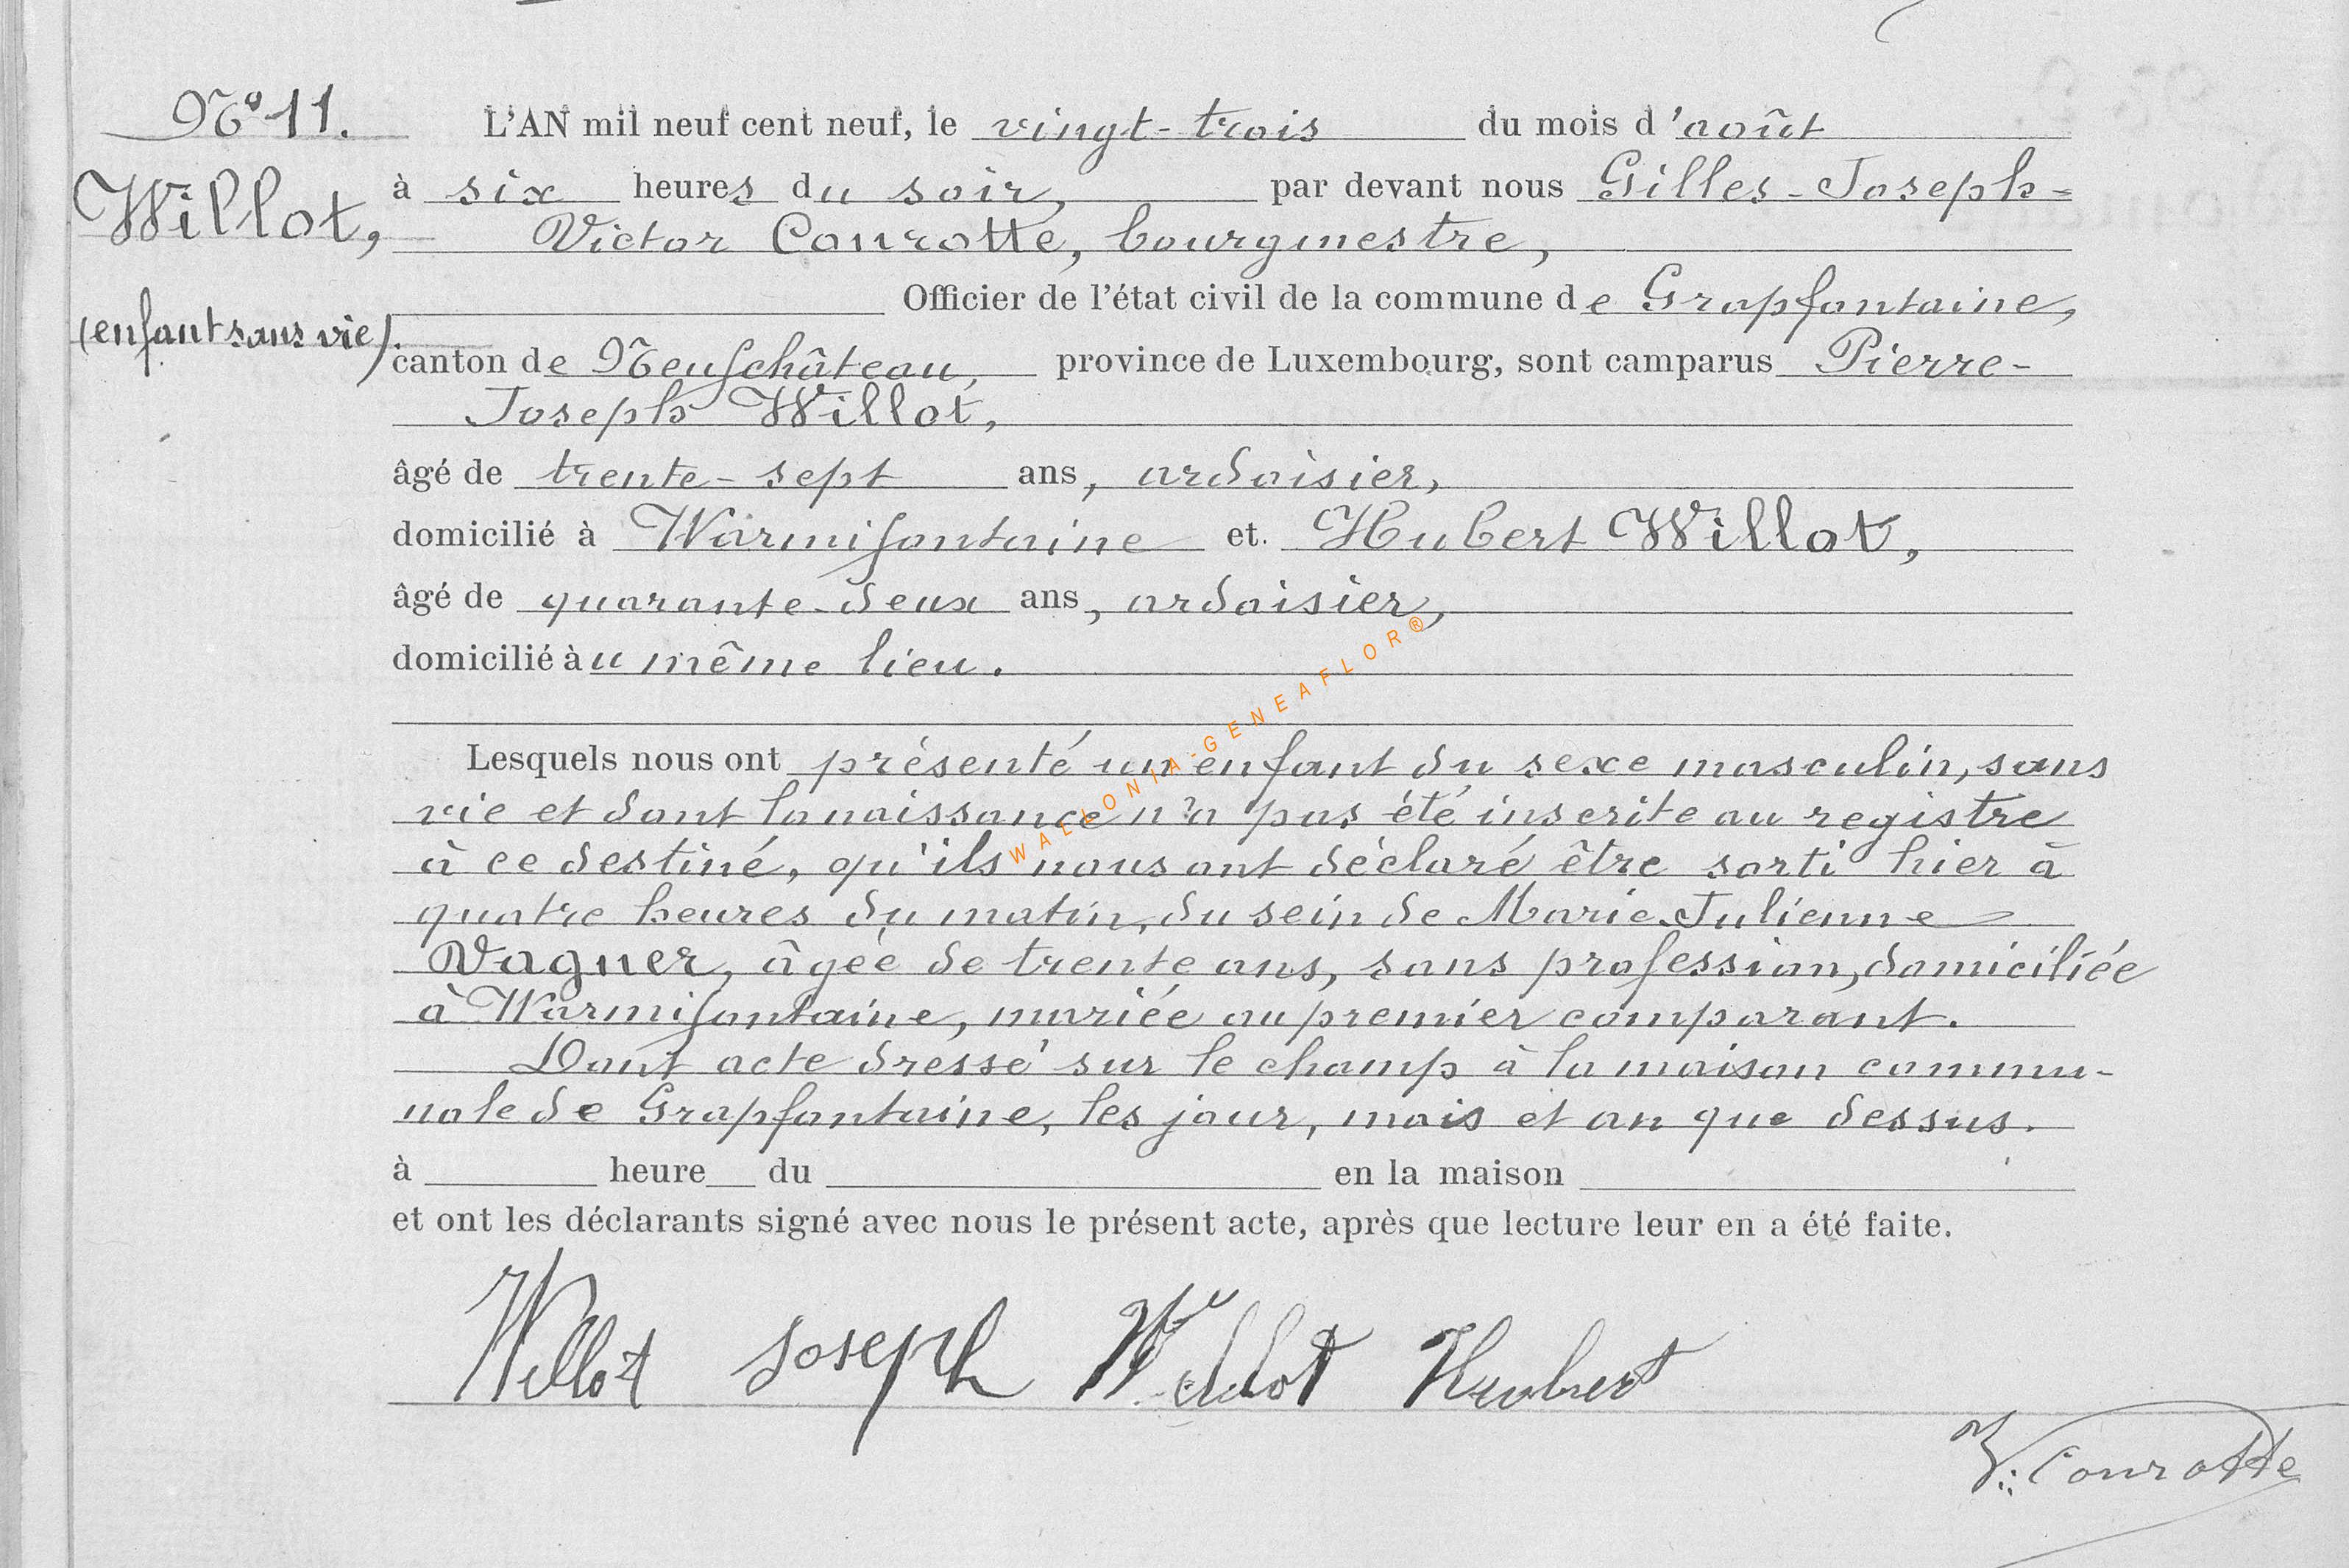 No 11.
L'AN mil neuf cent neuf, le vingt-trois du mois d'août
Willot,
à six heures du soir, par devant nous Gilles-Joseph-
Victor Conrotte, bourgmestre,
Officier de l'état civil de la commune de Grapfontaine,
(enfant sans vie).
canton de Neufchâteau, province de Luxembourg, sont camparus Pierre-
Joseph Willot,
âgé de trente-sept ans, ardoisier,
domicilié à Warmifontaine et. Hubert Willot,
âgé de quarante-deux ans, ardoisier,
domicilié au même lieu.
Lesquels nous ont présenté un enfant du sexe masculin, sans
vie et dont la naissance n'a pas été inscrite au registre
à ce destiné, qu'ils nous ont déclaré être sorti hier à
quatre heures du matin, du sein de Marie-Julienne
Wagner, âgée de trente ans, sans profession, domiciliée
à Warmifontaine, mariée au premier comparant.
Dont acte dressé sur le champ à la maison commu-
nale de Grapfontaine, les jour, mois et an que dessus.
à heure du en la maison
et ont les déclarants signé avec nous le présent acte, après que lecture leur en a été faite.
Willot Joseph Willot Hubert
V. Conrotte
WALLONIA-GENEAFLOR®